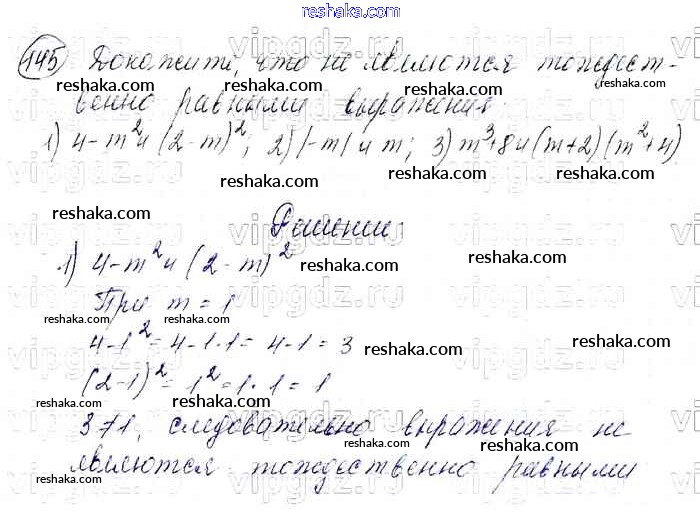 reshaka.com
145 Докажите, что не являются тождест-
венно равными выражения:
1) 4-m² и (2-m)²; 2) |-m| и m; 3) m³+8 и (m+2)(m²+4)
Решение:
1) 4-m² и (2-m)²
При m=1
4-1²=4-1·1=4-1=3
(2-1)²=1²=1·1=1
3≠1, следовательно выражения не
являются тождественно равными